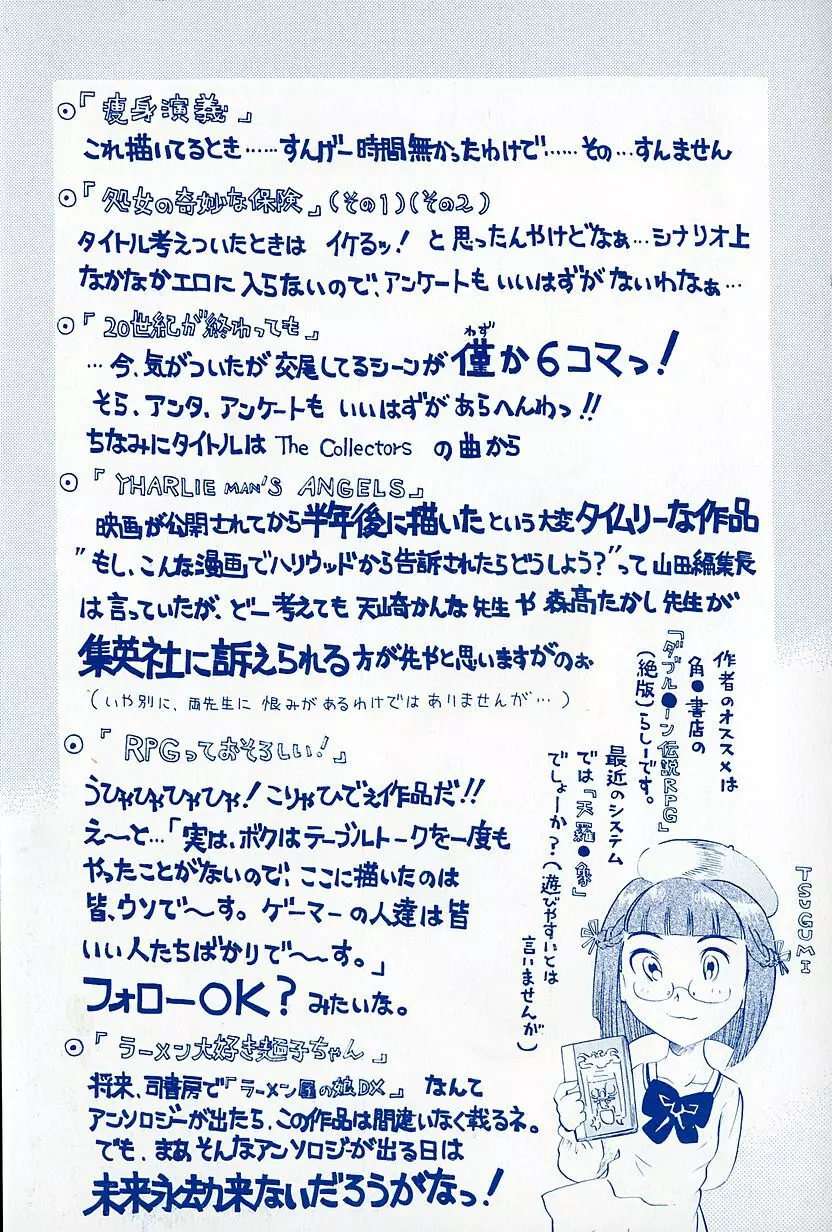 ◉『痩身演義』
これ描いてるとき……すんげー時間無かったわけで……その…すんません
◉『処女の奇妙な保険』(その1)(その2)
タイトル考えついたときは イケるッ! と思ったんやけどなぁ…シナリオ上
なかなかエロに入らないので、アンケートもいいはずがないわなぁ…
◉『20世紀が終わっても』
…今、気がついたが交尾してるシーンが僅か6コマっ!
わず
そら、アンタ、アンケートも いいはずがあらへんわっ!!
ちなみにタイトルは The Collectors の曲から
◉『YHARLIE MAN'S ANGELS』
映画が公開されてから半年後に描いたという大変タイムリーな作品
"もし、こんな漫画でハリウッドから告訴されたらどうしよう?"って山田編集長
は言っていたが、どー考えても天崎かんな先生や森髙たかし先生が
集英社に訴えられる方が先やと思いますがのぉ
(いや別に、両先生に恨みがあるわけではありませんが…)
◉『RPGっておそろしい!』
うひゃひゃひゃひゃ! こりゃひでぇ作品だ!!
え〜と…「実は、ボクはテーブルトークを一度も
やったことがないので、ここに描いたのは
皆、ウソで〜す。ゲーマーの人達は皆
いい人たちばかりで〜〜す。」
フォローOK? みたいな。
◉『ラーメン大好き麺子ちゃん』
将来、司書房で『ラーメン屋の娘DX』なんて
アンソロジーが出たら、この作品は間違いなく載るネ。
でも、まぁそんなアンソロジーが出る日は
未来永劫来ないだろうがなっ!
作者のオススメは
角●書店の
『ダブル●ーン伝説RPG』
(絶版)らしーです。
最近のシステム
では『天羅●象』
でしょーか?(遊びやすいとは
言いませんが)
TSUGUMI